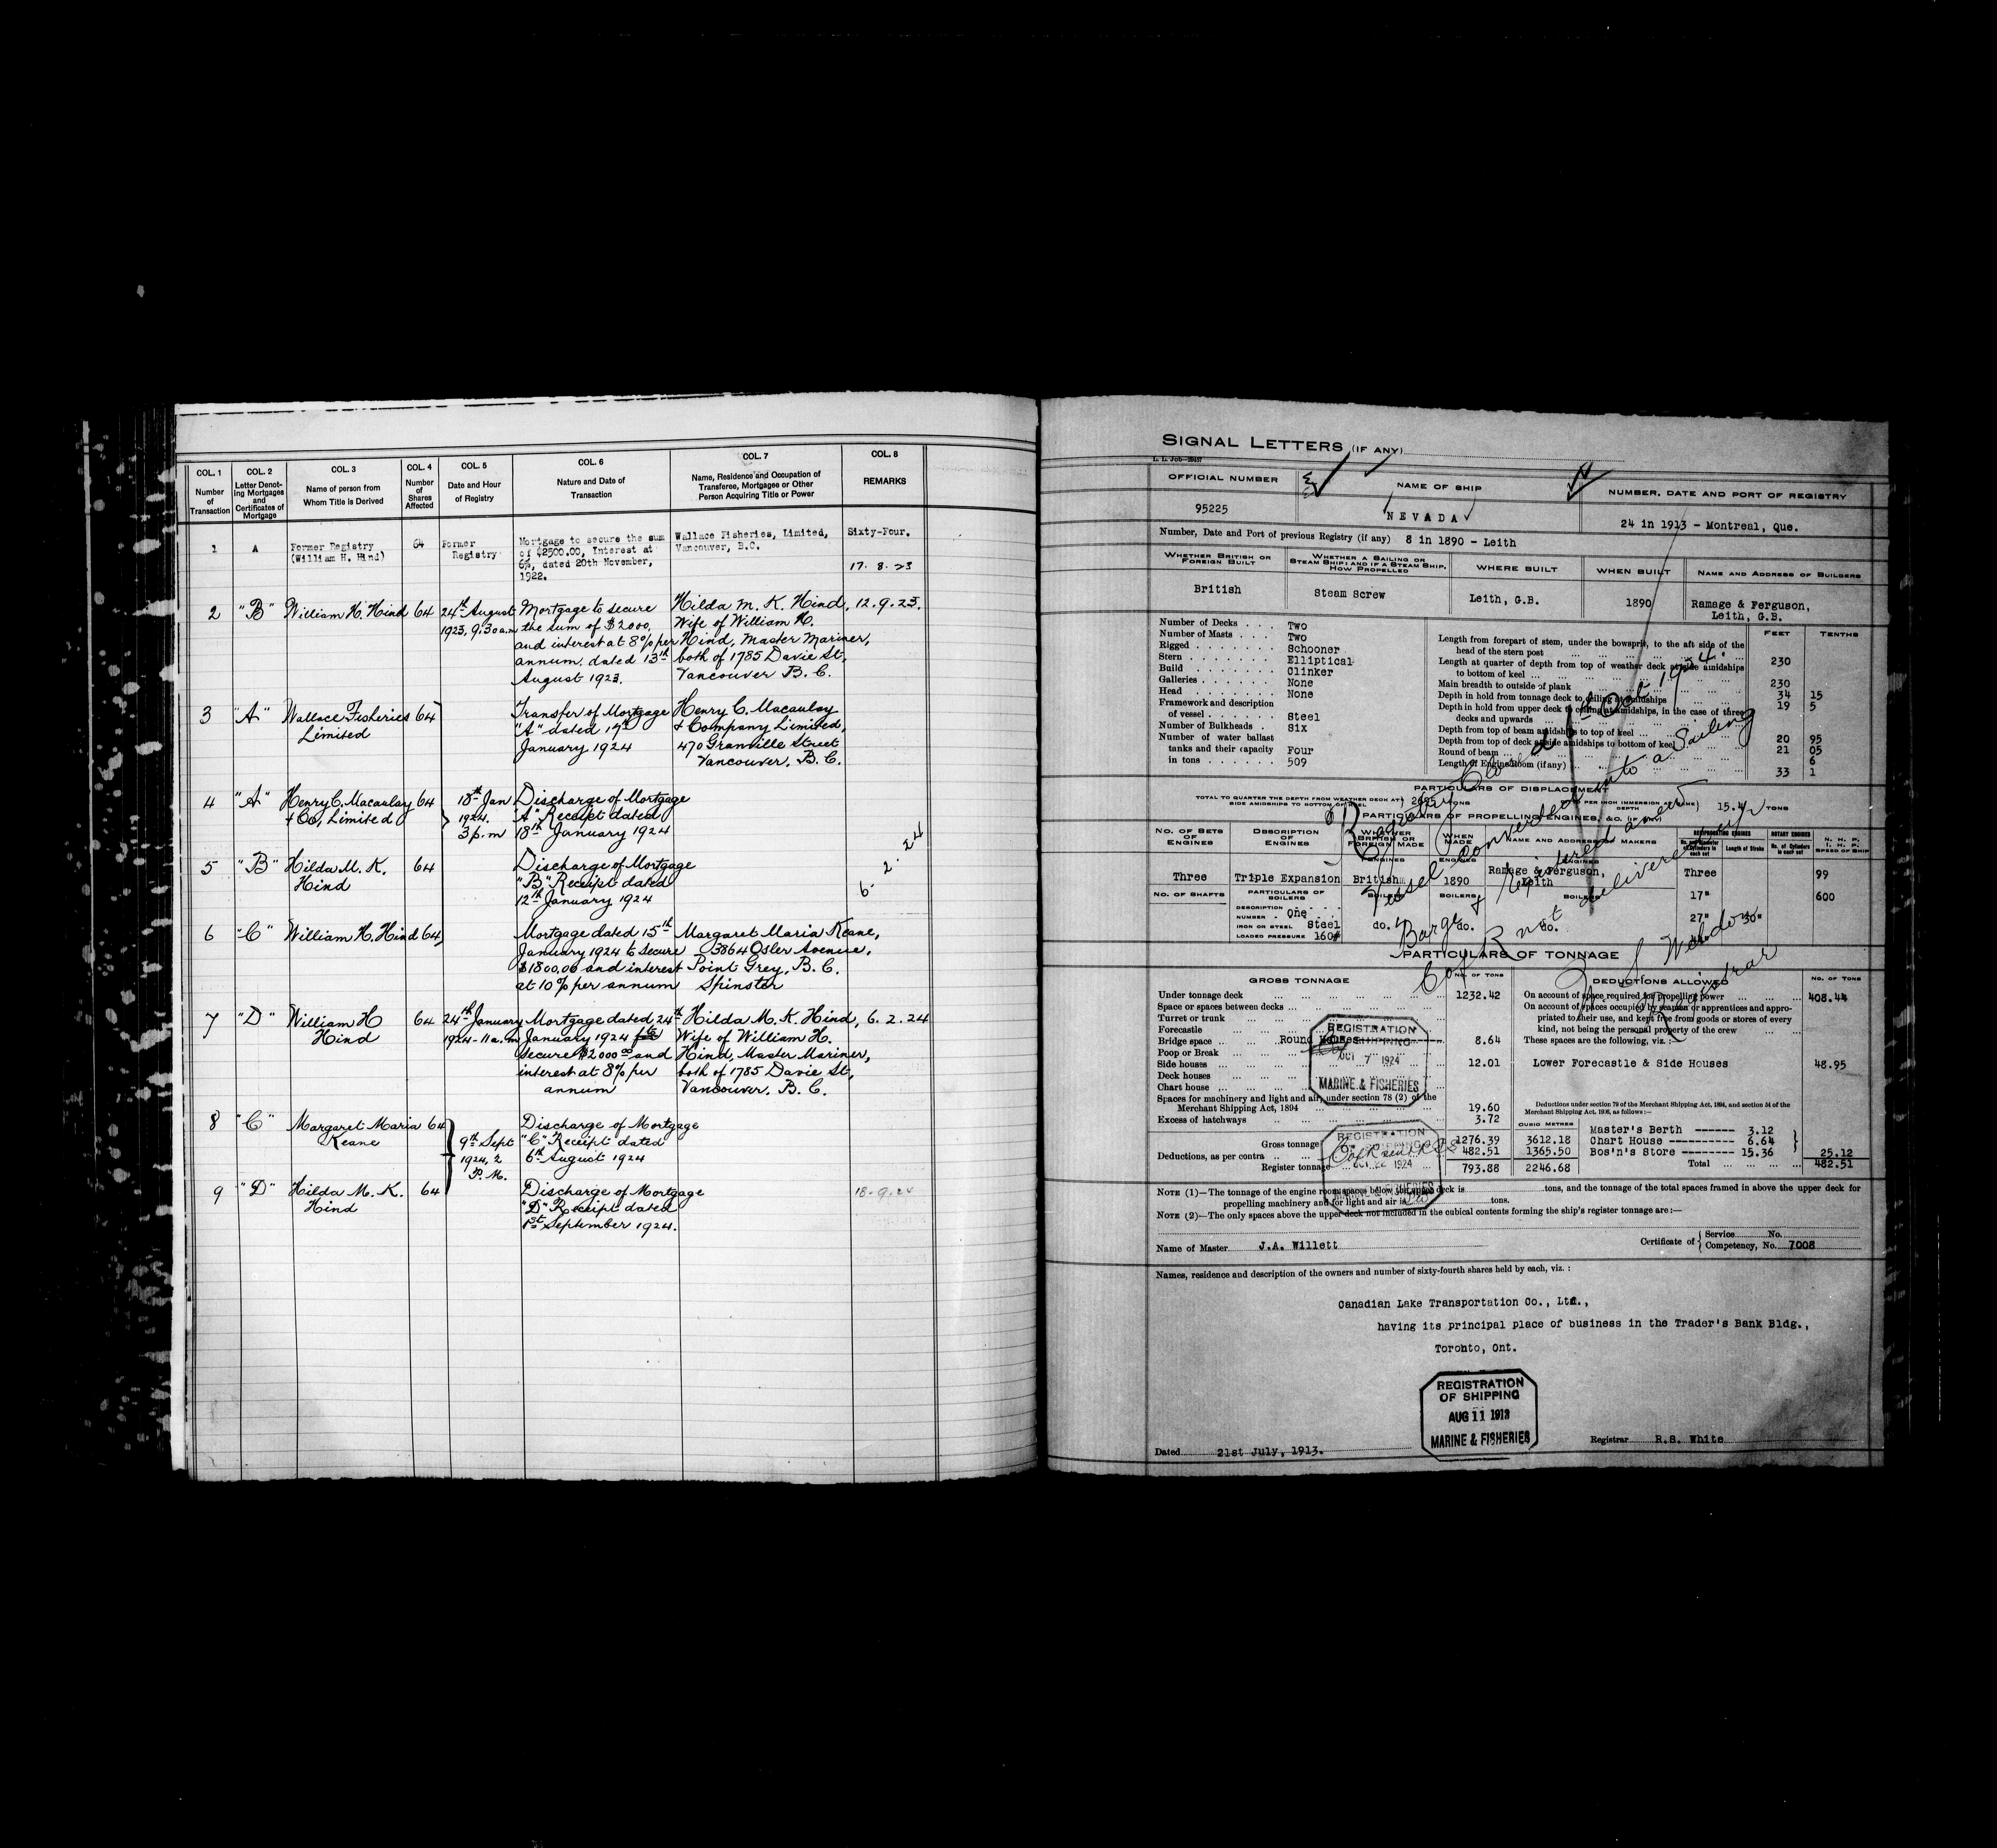 COL. 1 COL. 2 COL. 3 COL. 4 COL. 5 COL. 6 COL. 7 COL. 8
Number of Transaction
Letter Denoting Mortgages and Certificates of Mortgage
Name of person from Whom Title is Derived
Number of Shares Affected
Date and Hour of Registry
Nature and Date of Transaction
Name, Residence and Occupation of Transferee, Mortgagee or Other Person Acquiring Title or Power
REMARKS
1 A Former Registry 64 Former Mortgage to secure the sum Wallace Fisheries, Limited, Sixty-Four.
(William H. Hind) Registry of $2500.00, Interest at Vancouver, B.C.
6%, dated 20th November, 17. 8. 23
1922.
2 "B" William H. Hind 64 24th August Mortgage to secure Hilda M. K. Hind, 12.9.23.
1923, 9.30 a.m the sum of $2000, Wife of William H.
and interest at 8% per Hind, Master Mariner,
annum, dated 13th both of 1785 Davie St,
August 1923. Vancouver B. C.
3 "A" Wallace Fisheries 64 Transfer of Mortgage Henry C. Macaulay
Limited "A" dated 17th & Company Limited,
January 1924 470 Granville Street
Vancouver, B. C.
4 "A" Henry C. Macaulay 64 18th Jan Discharge of Mortgage
& Co, Limited 1924. "A" Receipt dated
3 p.m 18th January 1924
5 "B" Hilda M. K. 64 Discharge of Mortgage
Hind "B" Receipt dated 6. 2. 24
12th January 1924
6 "C" William H. Hind 64 Mortgage dated 15th Margaret Maria Keane,
January 1924 to secure 3864 Osler Avenue,
$1800.00 and interest Point Grey, B. C.
at 10% per annum Spinster
7 "D" William H 64 24th January Mortgage dated 24th Hilda M. K. Hind, 6. 2. 24
Hind 1924 - 11 a.m January 1924 to Wife of William H.
secure $2000 00 and Hind, Master Mariner,
interest at 8% per both of 1785 Davie St,
annum Vancouver, B. C.
8 "C" Margaret Maria 64 Discharge of Mortgage
Keane 9th Sept "C" Receipt dated
1924, 2 6th August 1924
P. M.
9 "D" Hilda M. K. 64 Discharge of Mortgage 18-9-24
Hind "D" Receipt dated
1st September 1924.
SIGNAL LETTERS (IF ANY)
L. I. Job
OFFICIAL NUMBER NAME OF SHIP NUMBER, DATE AND PORT OF REGISTRY
95225 NEVADA 24 in 1913 - Montreal, Que.
Number, Date and Port of previous Registry (if any) 8 in 1890 - Leith
WHETHER BRITISH OR FOREIGN BUILT
WHETHER A SAILING OR STEAM SHIP; AND IF A STEAM SHIP, HOW PROPELLED
WHERE BUILT WHEN BUILT NAME AND ADDRESS OF BUILDERS
British Steam Screw Leith, G.B. 1890 Ramage & Ferguson,
Leith, G.B.
FEET TENTHS
Number of Decks Two
Number of Masts Two
Rigged Schooner
Stern Elliptical
Build Clinker
Galleries None
Head None
Framework and description
of vessel Steel
Number of Bulkheads Six
Number of water ballast
tanks and their capacity Four
in tons 509
Length from forepart of stem, under the bowsprit, to the aft side of the
head of the stern post 230
Length at quarter of depth from top of weather deck at side amidships
to bottom of keel 230
Main breadth to outside of plank 34 15
Depth in hold from tonnage deck to ceiling at amidships 19 5
Depth in hold from upper deck to ceiling at amidships, in the case of three
decks and upwards
Depth from top of beam amidships to top of keel 20 95
Depth from top of deck at side amidships to bottom of keel 21 05
Round of beam 6
Length of Engine Room (if any) 33 1
PARTICULARS OF DISPLACEMENT
TOTAL TO QUARTER THE DEPTH FROM WEATHER DECK AT
SIDE AMIDSHIPS TO BOTTOM OF KEEL TONS PER INCH IMMERSION AT SAME DEPTH 15.4 TONS
PARTICULARS OF PROPELLING ENGINES, &C. (IF ANY)
NO. OF SETS OF ENGINES DESCRIPTION OF ENGINES WHETHER BRITISH OR FOREIGN MADE WHEN MADE NAME AND ADDRESS OF MAKERS
RECIPROCATING ENGINES ROTARY ENGINES N. H. P. I. H. P. SPEED OF SHIP
Length of Stroke
ENGINES ENGINES ENGINES
Three Triple Expansion British 1890 Ramage & Ferguson, Three 99
Leith
NO. OF SHAFTS PARTICULARS OF BOILERS BOILERS BOILERS 17" 600
DESCRIPTION
NUMBER One
IRON OR STEEL Steel do. do. do. 27" 30"
LOADED PRESSURE 160#
Registry Closed 1st Oct 1924.
Vessel converted into a Sailing
Barge & registered anew
C of R not delivered up
Registrar
PARTICULARS OF TONNAGE
GROSS TONNAGE NO. OF TONS DEDUCTIONS ALLOWED NO. OF TONS
Under tonnage deck 1232.42
Space or spaces between decks
Turret or trunk
Forecastle
Bridge space Round Houses 8.64
Poop or Break
Side houses 12.01
Deck houses
Chart house
Spaces for machinery and light and air, under section 78 (2) of the
Merchant Shipping Act, 1894 19.60
Excess of hatchways 3.72
Gross tonnage 1276.39 3612.18
Deductions, as per contra 482.51 1365.50
Register tonnage 793.88 2246.68
CUBIC METRES
On account of space required for propelling power 408.44
On account of spaces occupied by seamen or apprentices and appro-
priated to their use, and kept free from goods or stores of every
kind, not being the personal property of the crew
These spaces are the following, viz. :
Lower Forecastle & Side Houses 48.95
Deductions under section 79 of the Merchant Shipping Act, 1894, and section 54 of the
Merchant Shipping Act, 1906, as follows:—
Master's Berth 3.12
Chart House 6.64
Bos'n's Store 15.36 25.12
Total 482.51
REGISTRATION
OF SHIPPING
OCT 7 1924
MARINE & FISHERIES
REGISTRATION
OF SHIPPING
OCT 22 1924
MARINE & FISHERIES
NOTE (1)—The tonnage of the engine room spaces below the upper deck is tons, and the tonnage of the total spaces framed in above the upper deck for
propelling machinery and for light and air is tons.
NOTE (2)—The only spaces above the upper deck not included in the cubical contents forming the ship's register tonnage are:—
Name of Master J.A. Willett Certificate of Service No.
Competency, No. 7008
Names, residence and description of the owners and number of sixty-fourth shares held by each, viz. :
Canadian Lake Transportation Co., Ltd.,
having its principal place of business in the Trader's Bank Bldg.,
Toronto, Ont.
REGISTRATION
OF SHIPPING
AUG 11 1913
MARINE & FISHERIES
Dated 21st July, 1913. Registrar R.S. White